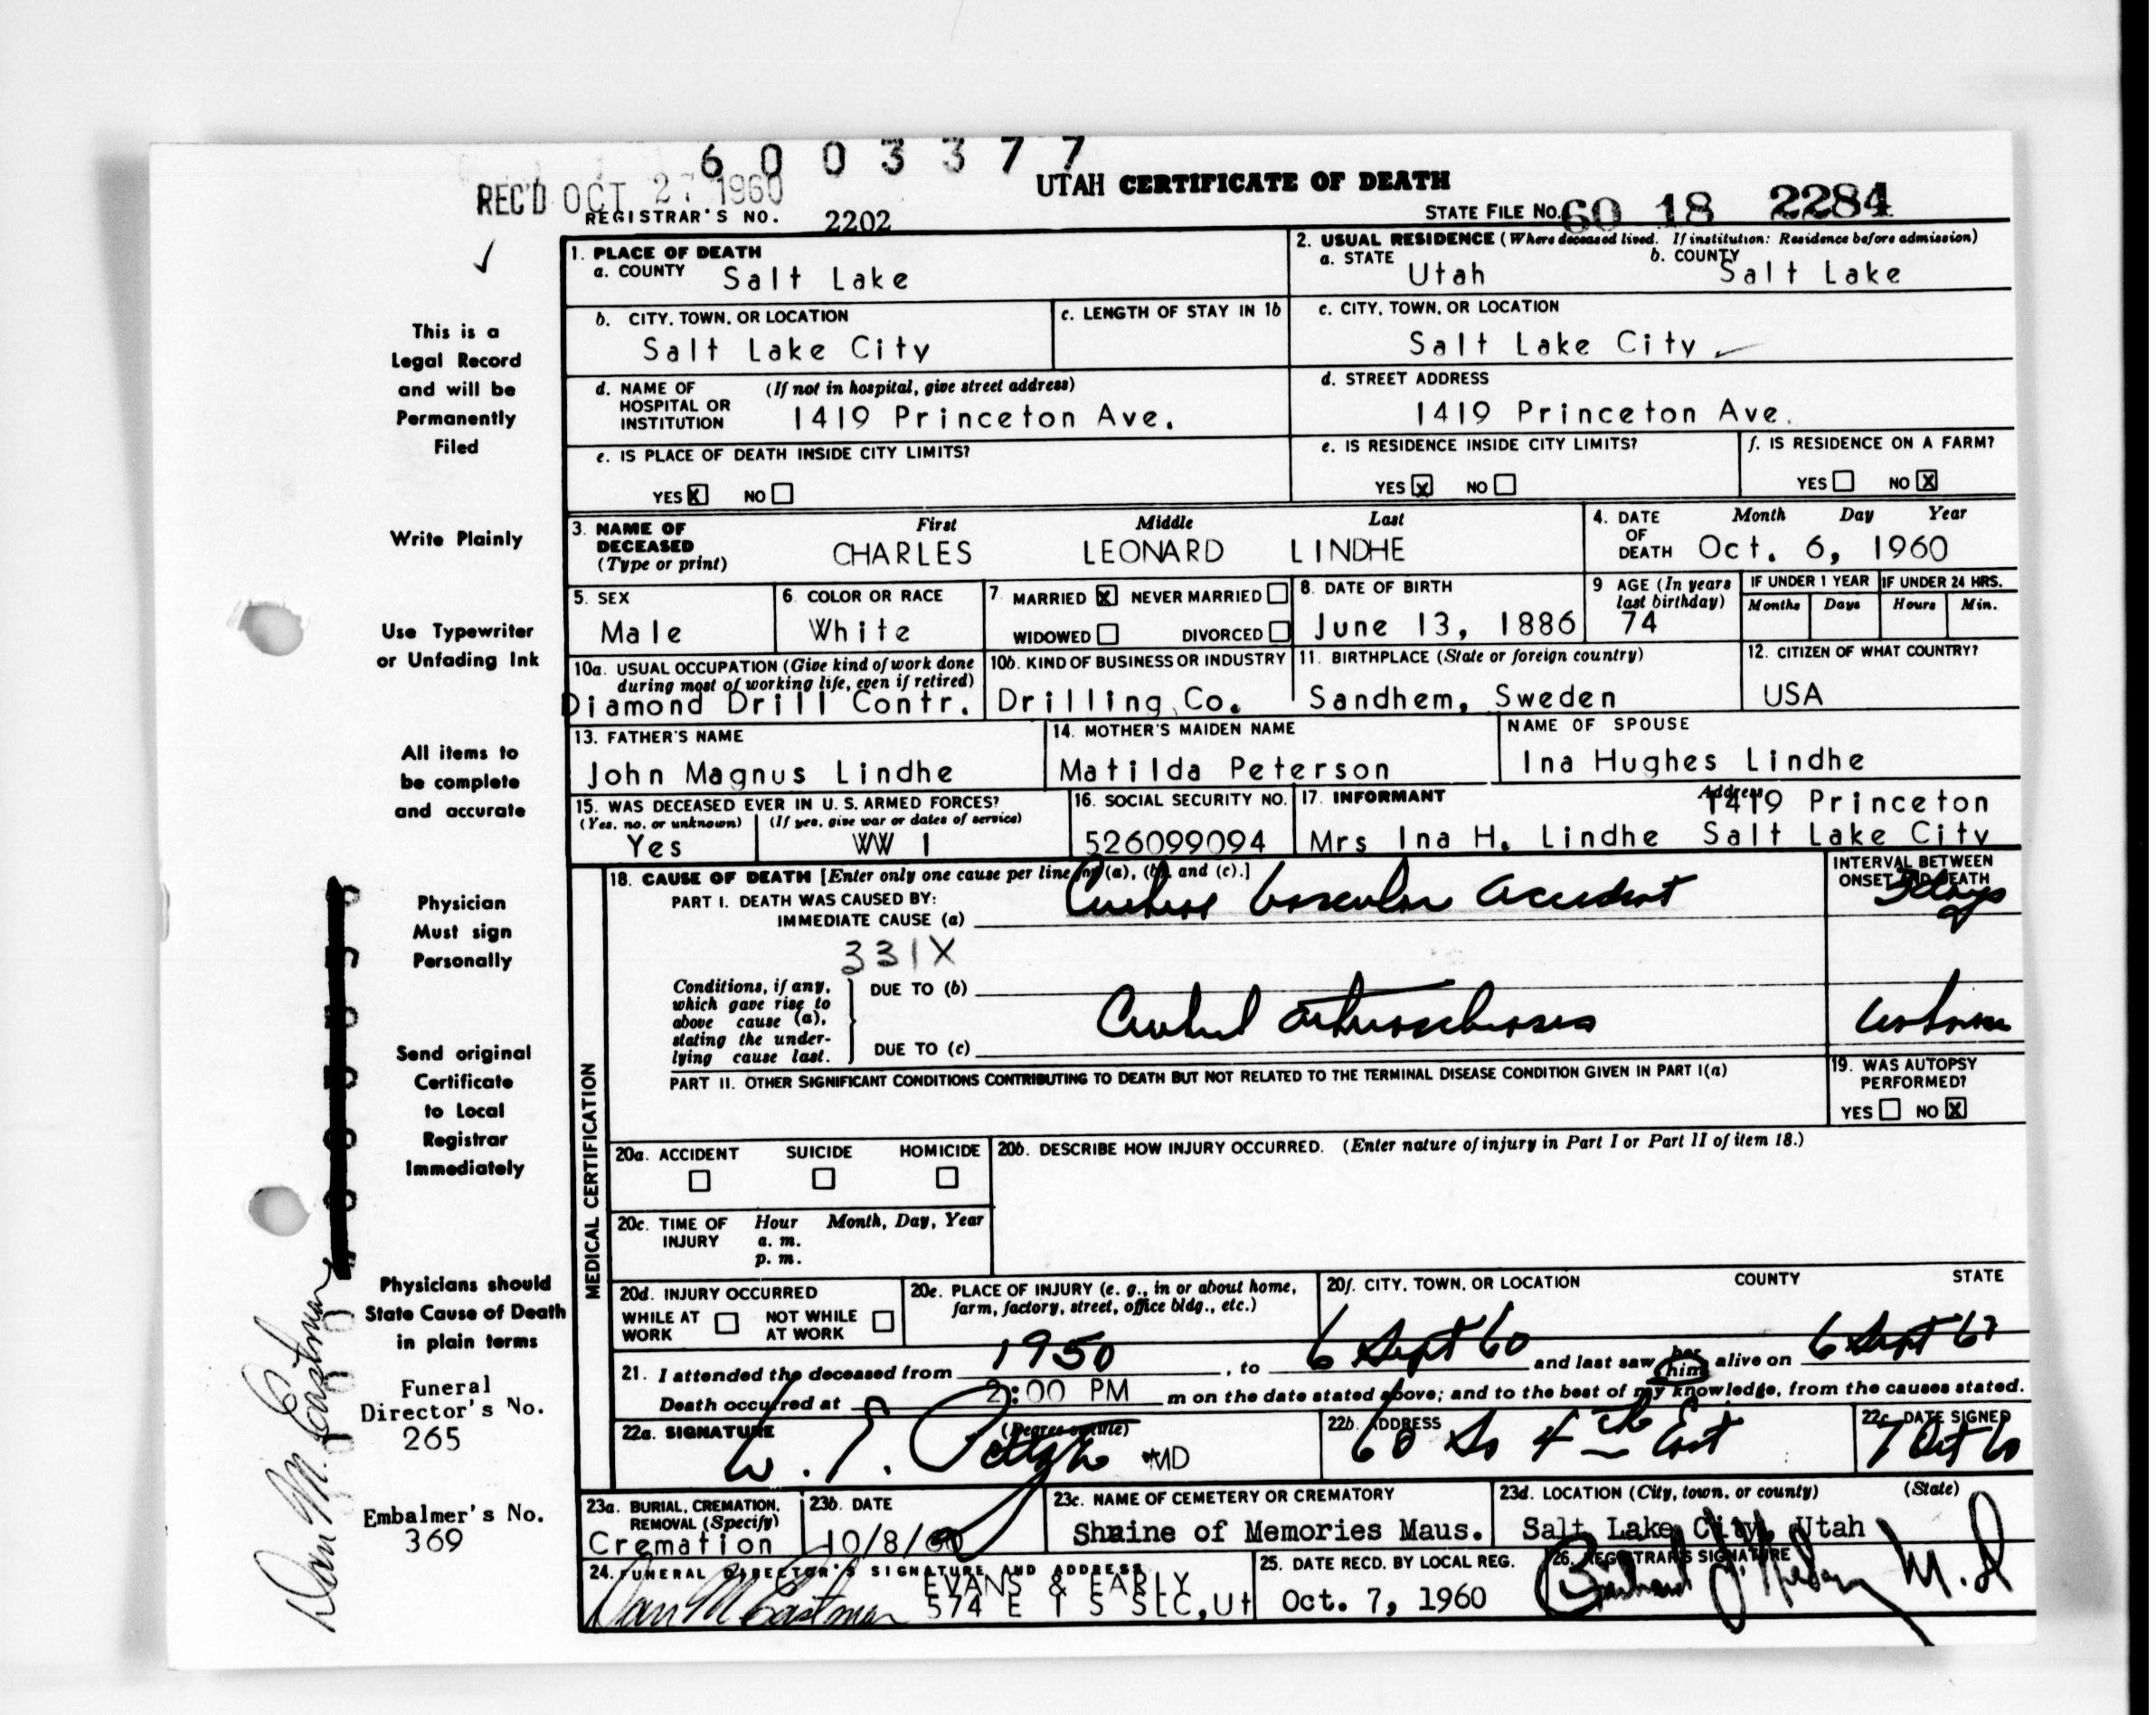 6 0 0 3 3 7 7
REC'D OCT 27 1960
UTAH CERTIFICATE OF DEATH
REGISTRAR'S NO. 2202
STATE FILE NO. 60 18 2284
This is a
Legal Record
and will be
Permanently
Filed
Write Plainly
Use Typewriter
or Unfading Ink
All items to
be complete
and accurate
Physician
Must sign
Personally
Send original
Certificate
to Local
Registrar
Immediately
Physicians should
State Cause of Death
in plain terms
Funeral
Director's No.
265
Embalmer's No.
369
Dan M. Eastman
1. PLACE OF DEATH
a. COUNTY Salt Lake
2. USUAL RESIDENCE (Where deceased lived. If institution: Residence before admission)
a. STATE Utah b. COUNTY Salt Lake
b. CITY, TOWN, OR LOCATION
Salt Lake City
c. LENGTH OF STAY IN 1b
c. CITY, TOWN, OR LOCATION
Salt Lake City
d. NAME OF HOSPITAL OR INSTITUTION (If not in hospital, give street address)
1419 Princeton Ave.
d. STREET ADDRESS
1419 Princeton Ave.
e. IS PLACE OF DEATH INSIDE CITY LIMITS?
YES X NO
e. IS RESIDENCE INSIDE CITY LIMITS?
YES X NO
f. IS RESIDENCE ON A FARM?
YES NO X
3. NAME OF DECEASED (Type or print)
First Middle Last
CHARLES LEONARD LINDHE
4. DATE OF DEATH
Month Day Year
Oct. 6, 1960
5. SEX
Male
6. COLOR OR RACE
White
7. MARRIED X NEVER MARRIED
WIDOWED DIVORCED
8. DATE OF BIRTH
June 13, 1886
9 AGE (In years last birthday)
74
IF UNDER 1 YEAR
Months Days
IF UNDER 24 HRS.
Hours Min.
10a. USUAL OCCUPATION (Give kind of work done during most of working life, even if retired)
Diamond Drill Contr.
10b. KIND OF BUSINESS OR INDUSTRY
Drilling Co.
11. BIRTHPLACE (State or foreign country)
Sandhem, Sweden
12. CITIZEN OF WHAT COUNTRY?
USA
13. FATHER'S NAME
John Magnus Lindhe
14. MOTHER'S MAIDEN NAME
Matilda Peterson
NAME OF SPOUSE
Ina Hughes Lindhe
15. WAS DECEASED EVER IN U. S. ARMED FORCES?
(Yes, no, or unknown) (If yes, give war or dates of service)
Yes WW I
16. SOCIAL SECURITY NO.
526099094
17. INFORMANT Address
1419 Princeton
Mrs Ina H. Lindhe Salt Lake City
MEDICAL CERTIFICATION
18. CAUSE OF DEATH [Enter only one cause per line for (a), (b), and (c).]
PART I. DEATH WAS CAUSED BY:
IMMEDIATE CAUSE (a) vascular accident
INTERVAL BETWEEN ONSET AND DEATH
3 days
331X
Conditions, if any, which gave rise to above cause (a), stating the underlying cause last.
DUE TO (b)
DUE TO (c)
PART II. OTHER SIGNIFICANT CONDITIONS CONTRIBUTING TO DEATH BUT NOT RELATED TO THE TERMINAL DISEASE CONDITION GIVEN IN PART I(a)
19. WAS AUTOPSY PERFORMED?
YES NO X
20a. ACCIDENT SUICIDE HOMICIDE
20b. DESCRIBE HOW INJURY OCCURRED. (Enter nature of injury in Part I or Part II of item 18.)
20c. TIME OF INJURY Hour Month, Day, Year
a. m.
p. m.
20d. INJURY OCCURRED
WHILE AT WORK NOT WHILE AT WORK
20e. PLACE OF INJURY (e. g., in or about home, farm, factory, street, office bldg., etc.)
20f. CITY, TOWN, OR LOCATION COUNTY STATE
21. I attended the deceased from 1950, to 6 Sept 60 and last saw her him alive on 6 Sept 60
Death occurred at 2:00 PM m on the date stated above; and to the best of my knowledge, from the causes stated.
22a. SIGNATURE (Degree or title)
W. MD
22b. ADDRESS
60 So 4th East
22c. DATE SIGNED
7 Oct 60
23a. BURIAL, CREMATION, REMOVAL (Specify)
Cremation
23b. DATE
10/8/60
23c. NAME OF CEMETERY OR CREMATORY
Shrine of Memories Maus.
23d. LOCATION (City, town, or county) (State)
Salt Lake City, Utah
24. FUNERAL DIRECTOR'S SIGNATURE AND ADDRESS
EVANS & EARLY
Dan M Eastman 574 E 1 S SLC, Ut
25. DATE RECD. BY LOCAL REG.
Oct. 7, 1960
26. REGISTRAR'S SIGNATURE
M.D